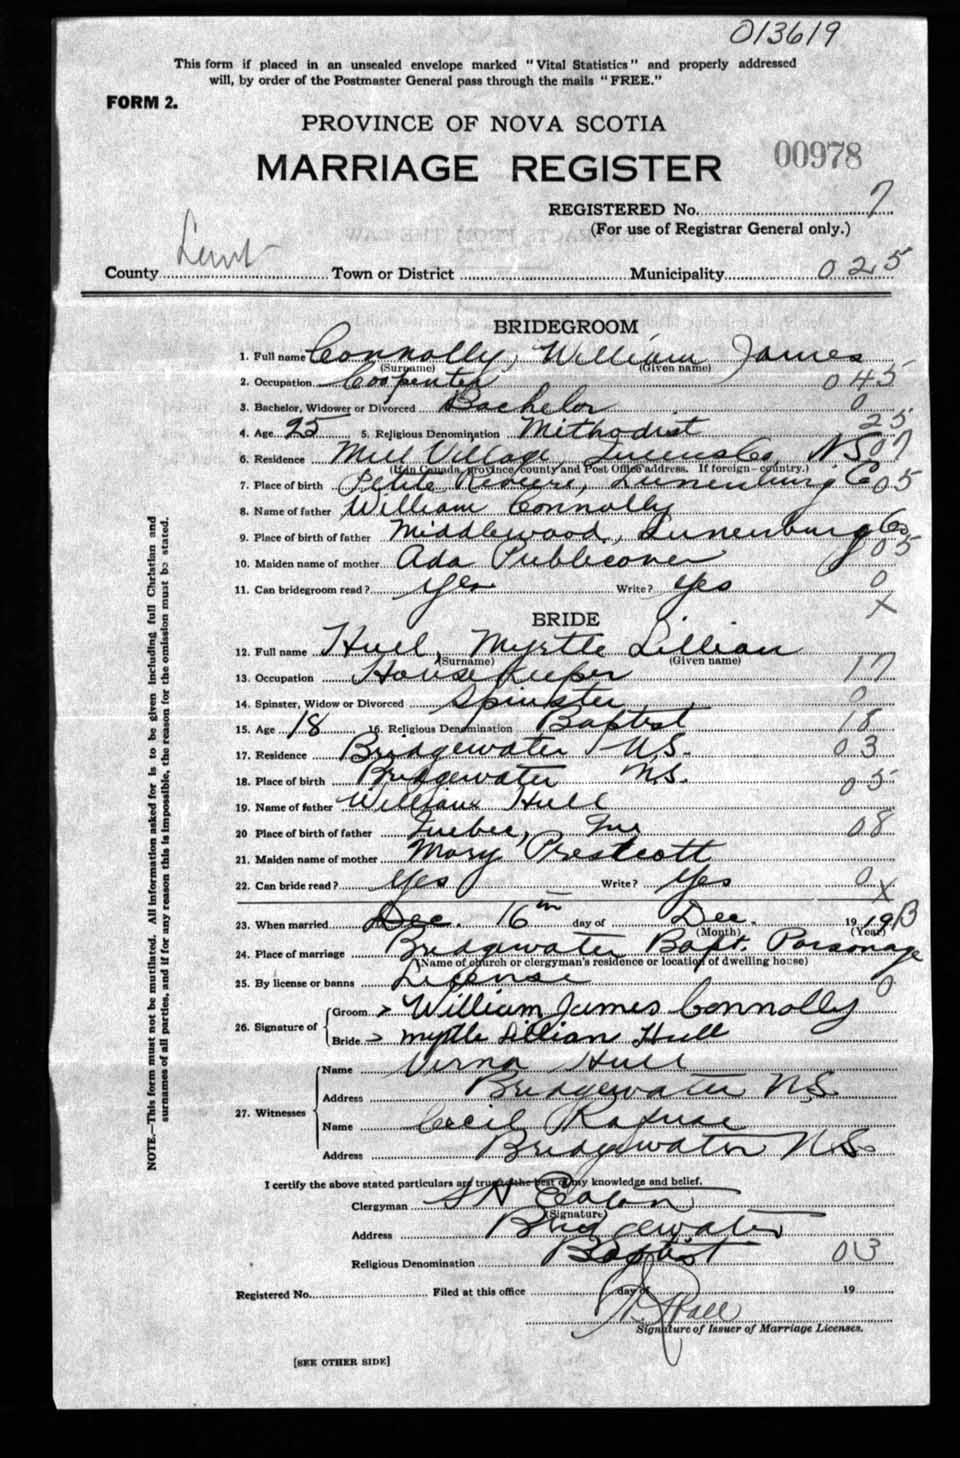 013619
This form if placed in an unsealed envelope marked "Vital Statistics" and properly addressed
will, by order of the Postmaster General pass through the mails "FREE."
FORM 2.
PROVINCE OF NOVA SCOTIA
MARRIAGE REGISTER 00978
REGISTERED No. 7
(For use of Registrar General only.)
County Town or District Municipality 025
BRIDEGROOM
1. Full name Connolly, William James
(Surname) (Given name)
2. Occupation Carpenter 045
3. Bachelor, Widower or Divorced Bachelor 0
4. Age 25 5. Religious Denomination Methodist 25
6. Residence Mill Village, Queens Co, N.S. 07
(If in Canada, province, county and Post Office address. If foreign—country.)
7. Place of birth Petite Riviere, Lunenburg Co 05
8. Name of father William Connolly
9. Place of birth of father Middlewood, Lunenburg Co
10. Maiden name of mother Ada Publicover 05
11. Can bridegroom read? Yes Write? Yes 0
X
BRIDE
12. Full name Hull, Myrtle Lillian
(Surname) (Given name)
13. Occupation House Keeper 17
14. Spinster, Widow or Divorced Spinster 0
15. Age 18 16. Religious Denomination Baptist 18
17. Residence Bridgewater N.S. 03
18. Place of birth Bridgewater N.S. 05
19. Name of father William Hull
20 Place of birth of father Quebec, Que 08
21. Maiden name of mother Mary Prestcott
22. Can bride read? Yes Write? Yes 0
X
23. When married Dec. 16th day of Dec. 19 19
(Month) (Year)
24. Place of marriage Bridgewater Bapt. Parsonage
(Name of church or clergyman's residence or location of dwelling house)
25. By license or banns License 0
26. Signature of Groom William James Connolly
Bride Myrtle Lillian Hull
27. Witnesses Name Verna Hull
Address Bridgewater N.S.
Name Cecil Rafuse
Address Bridgewater N.S.
I certify the above stated particulars are true to the best of my knowledge and belief.
Clergyman S H Eaton
(Signature)
Address Bridgewater
Religious Denomination Baptist 03
Registered No. Filed at this office day of 19
Signature of Issuer of Marriage Licenses.
[SEE OTHER SIDE]
NOTE.—This form must not be mutilated. All information asked for is to be given including full Christian and
surnames of all parties, and if for any reason this is impossible, the reason for the omission must be stated.